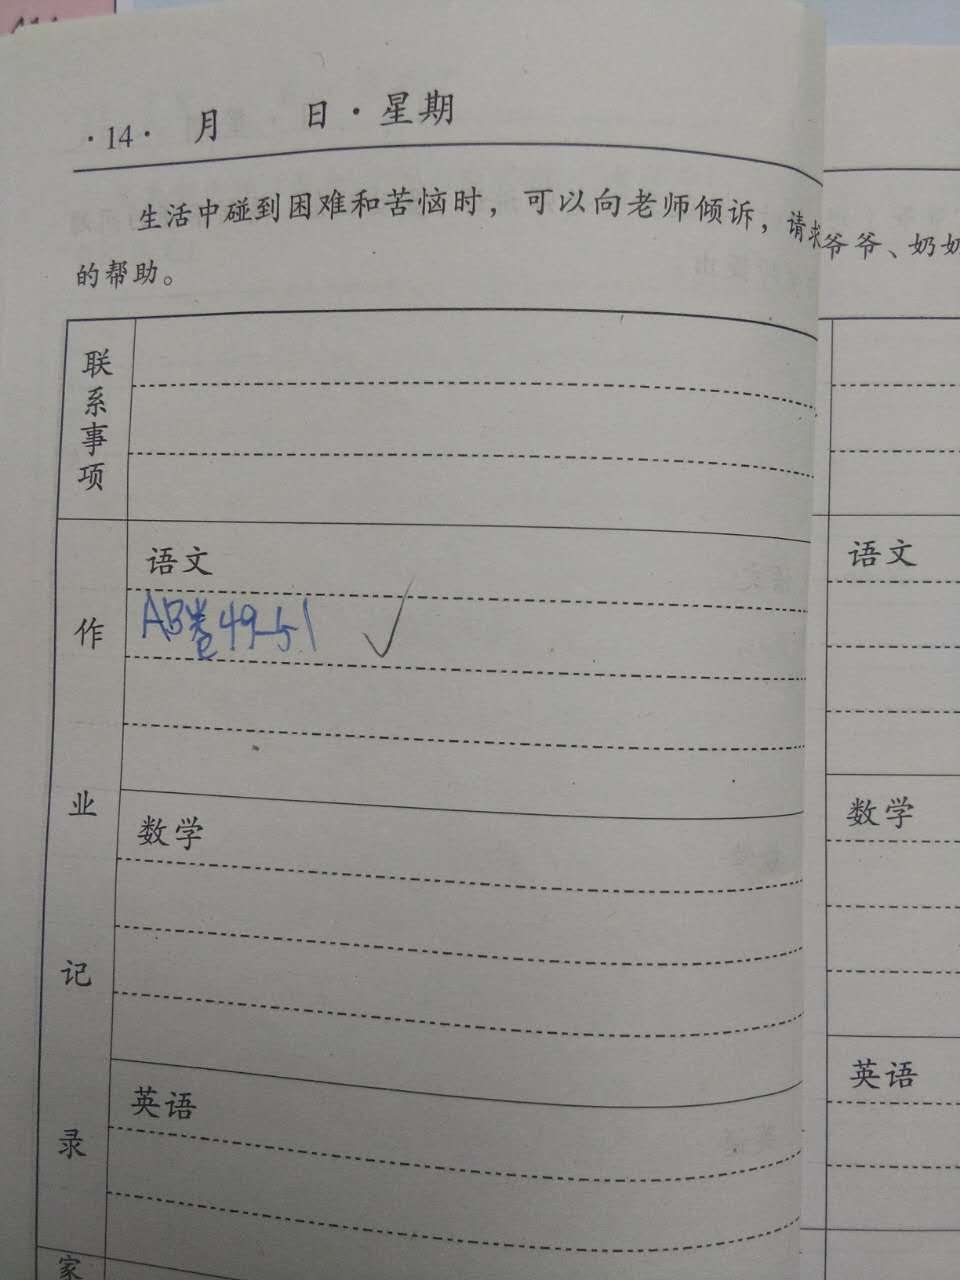 ·14· 月 日·星期
生活中碰到困难和苦恼时，可以向老师倾诉，请求
的帮助。
联系事项
作业记录
语文
AB卷49-51
数学
英语
家
爷爷、奶奶
语文
数学
英语